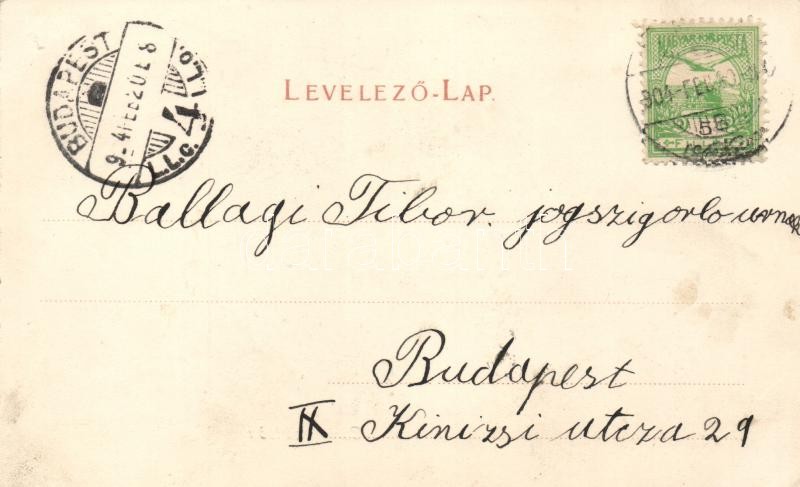 BUDAPEST
LEVELEZŐ-LAP.
MAGYAR KIR. POSTA
Ballagi Tibor. jogszigorló urnak
Budapest
IX Kinizsi utcza 29